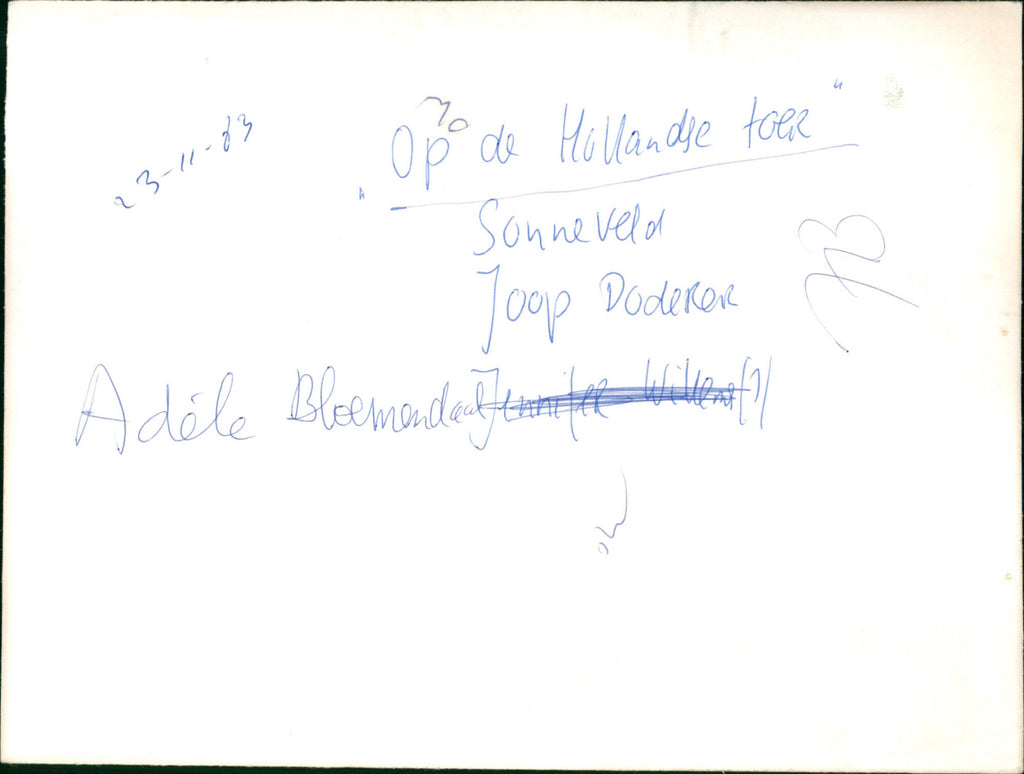 23-11-83
"Op de Hollandse toer"
Sonneveld
Joop Doderer
Adèle Bloemendaal Jennifer Willems (?)